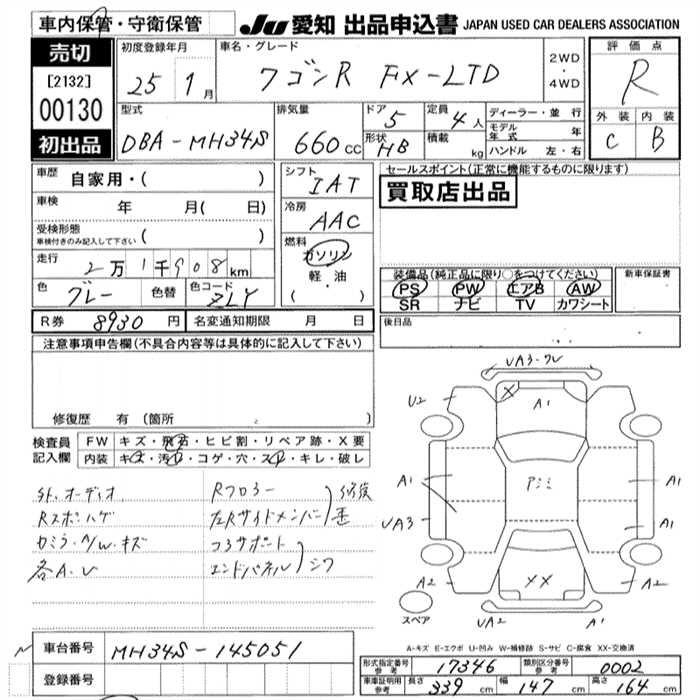 車内保管・守衛保管
JU 愛知 出品申込書 JAPAN USED CAR DEALERS ASSOCIATION
売切
[2132]
00130
初出品
初度登録年月
25 1月
車名・グレード
ワゴンR FX-LTD
2WD
・
4WD
評価点
R
外装 内装
C B
型式
DBA-MH34S
排気量
660cc
ドア 5
形状 HB
定員 4人
積載 kg
ディーラー・並行
モデル年式 年
ハンドル 左・右
車歴 自家用・( )
車検 年 月( 日)
受検形態
車検付きのみ記入して下さい ( )
走行 2万1千908km
色 グレー 色替 色コード ZLY
シフト IAT
冷房 AAC
燃料 ガソリン
軽・油
( )
セールスポイント(正常に機能するものに限ります)
買取店出品
装備品(純正品に限り○をつけてください)
PS PW エアB AW
SR ナビ TV カワシート
新車保証書
R券 8930円 名変通知期限 月 日
後日品
注意事項申告欄(不具合内容等は具体的に記入して下さい)
修復歴 有(箇所 )
検査員記入欄
FW キズ・飛石・ヒビ割・リペア跡・X要
内装 キズ・汚レ・コゲ・穴・スレ・キレ・破レ
外.オーディオ
Rスポハゲ
カミラ・A/W.キズ
各A.U
Rフロアー
左Rサイドメンバー 修復歴
コアサポート
エンドパネル シワ
UA3-ワレ
U2
X
A1
A1
UA3
A2
Pミミ
A1
A1
XX
A2
UA2
A1
スペア
A-キズ E-エクボ U-凹み W-補修跡 S-サビ C-腐食 XX-交換済
車台番号 MH34S-145051
登録番号
形式指定番号 参考 17346 類別区分番号 参考 0002
車庫証明用 参考 長さ 339cm 幅 147cm 高さ 164cm